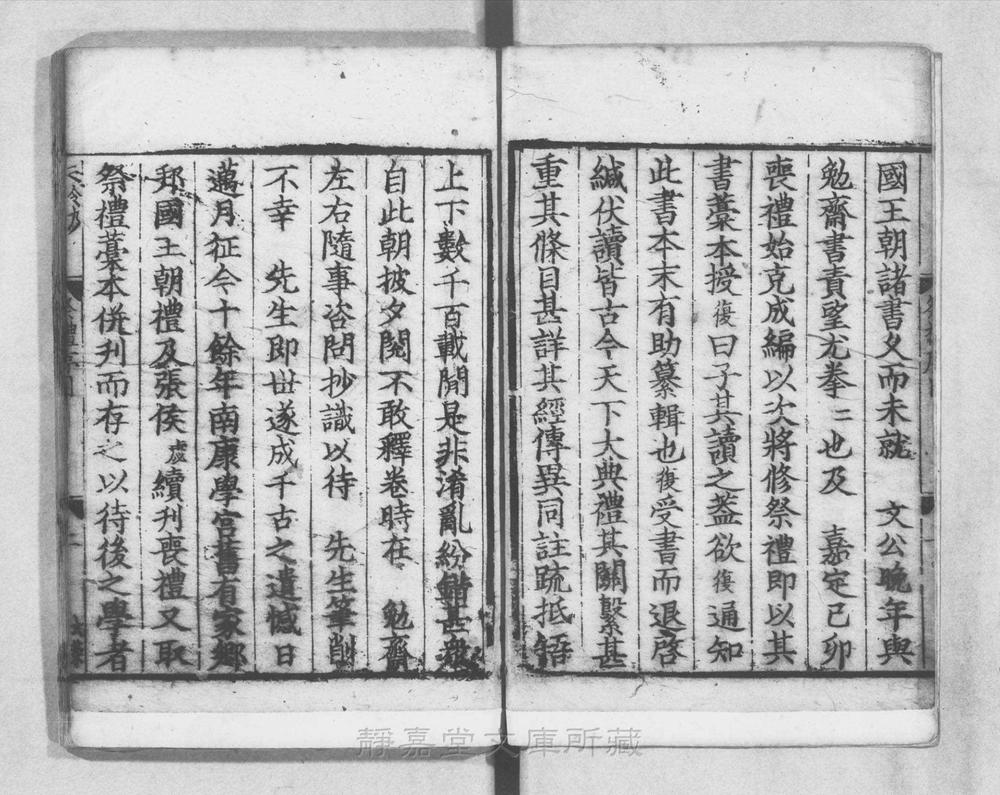 國王朝諸書乆而未就　文公晚年與
勉齋書責望尤拳〻也及　嘉定己卯
喪禮始克成編以次將修祭禮即以其
書藁本授復曰子其讀之葢欲復通知
此書本末有助纂輯也復受書而退啓
緘伏讀皆古今天下大典禮其關繫甚
重其條目甚詳其經傳異同註疏抵牾
上下數千百載間是非淆亂紛錯甚衆
自此朝披夕閱不敢釋卷時在　勉齋
左右隨事咨問抄識以待　先生筆削
不幸　先生即世遂成千古之遺憾日
邁月征今十餘年南康學宮舊有家鄉
邦國王朝禮及張侯虙續刋喪禮又取
祭禮藁本併刋而存之以待後之學者
靜嘉堂文庫所藏